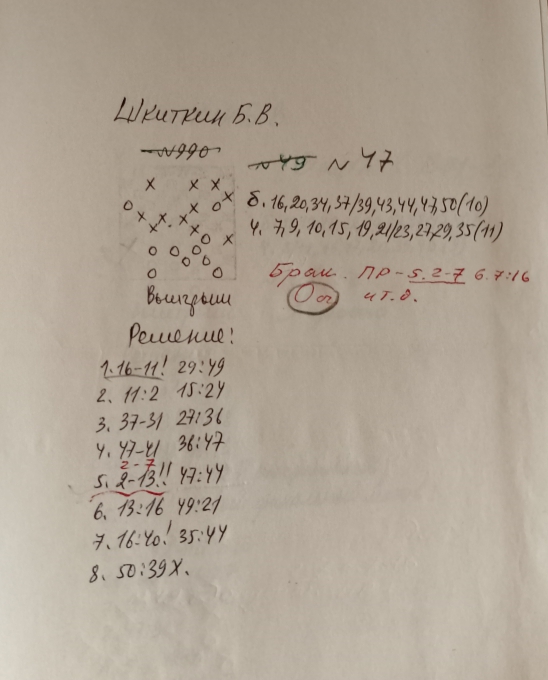 Шкиткин Б.В.
№990
№49 №47
б. 16,20,34,37/39,43,44,47,50(10)
ч. 7,9,10,15,19,21/23,27,29,35(11)
Брак. ПР-5.2-7 6.7:16
Оч и т.д.
Выигрыш
Решение!
1.16-11! 29:49
2. 11:2 15:24
3. 37-31 27:36
4. 47-41 36:47
2-7
5. 2-13!! 47:44
6. 13:16 49:21
7. 16:40! 35:44
8. 50:39X.